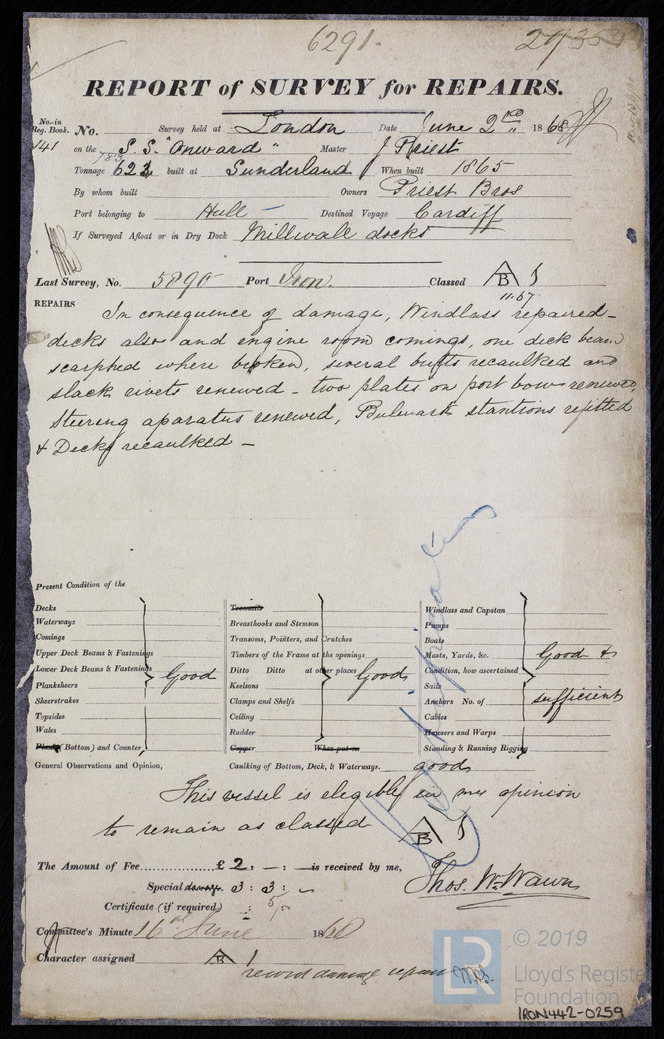 6291.
REPORT of SURVEY for REPAIRS.
No. in Reg. Book.
No. Survey held at London Date June 2nd 1868
141 on the S.S. "Onward" Master J Priest
783
Tonnage 623 built at Sunderland When built 1865
By whom built Owners Priest Bros
Port belonging to Hull — Destined Voyage Cardiff
If Surveyed Afloat or in Dry Dock Millwall docks
Last Survey, No. 5890 Port Iron. Classed A B 1
11.57
REPAIRS In consequence of damage, Windlass repaired –
decks also and engine room comings, one deck beam
scarphed where broken, several butts recaulked and
slack rivets renewed – two plates on port bow renewed
Steering aparatus renewed, Bulwark stantions refitted
& Decks recaulked –
Present Condition of the
Decks
Waterways
Comings
Upper Deck Beams & Fastenings
Lower Deck Beams & Fastenings
Planksheers
Sheerstrakes
Topsides
Wales
(Bottom) and Counter
Good
Treenails
Breasthooks and Stemson
Transoms, Pointers, and Crutches
Timbers of the Frame at the openings
Ditto Ditto at other places
Keelsons
Clamps and Shelfs
Ceiling
Rudder
Copper When put on
Good
Windlass and Capstan
Pumps
Boats
Masts, Yards, &c.
Condition, how ascertained
Sails
Anchors No. of
Cables
Hawsers and Warps
Standing & Running Rigging
Good &
sufficient
General Observations and Opinion, Caulking of Bottom, Deck, & Waterways. good
This vessel is eligible in my opinion
to remain as classed A B 1
The Amount of Fee............... £ 2 : — : — is received by me,
Special damage. 3 : 3 : –
Thos. W. Wawn
Certificate (if required) : 5/–
Committee's Minute 16th June 1868
Character assigned A B 1
record damage repair
© 2019
LR
Lloyd's Register
Foundation
IRON442-0259